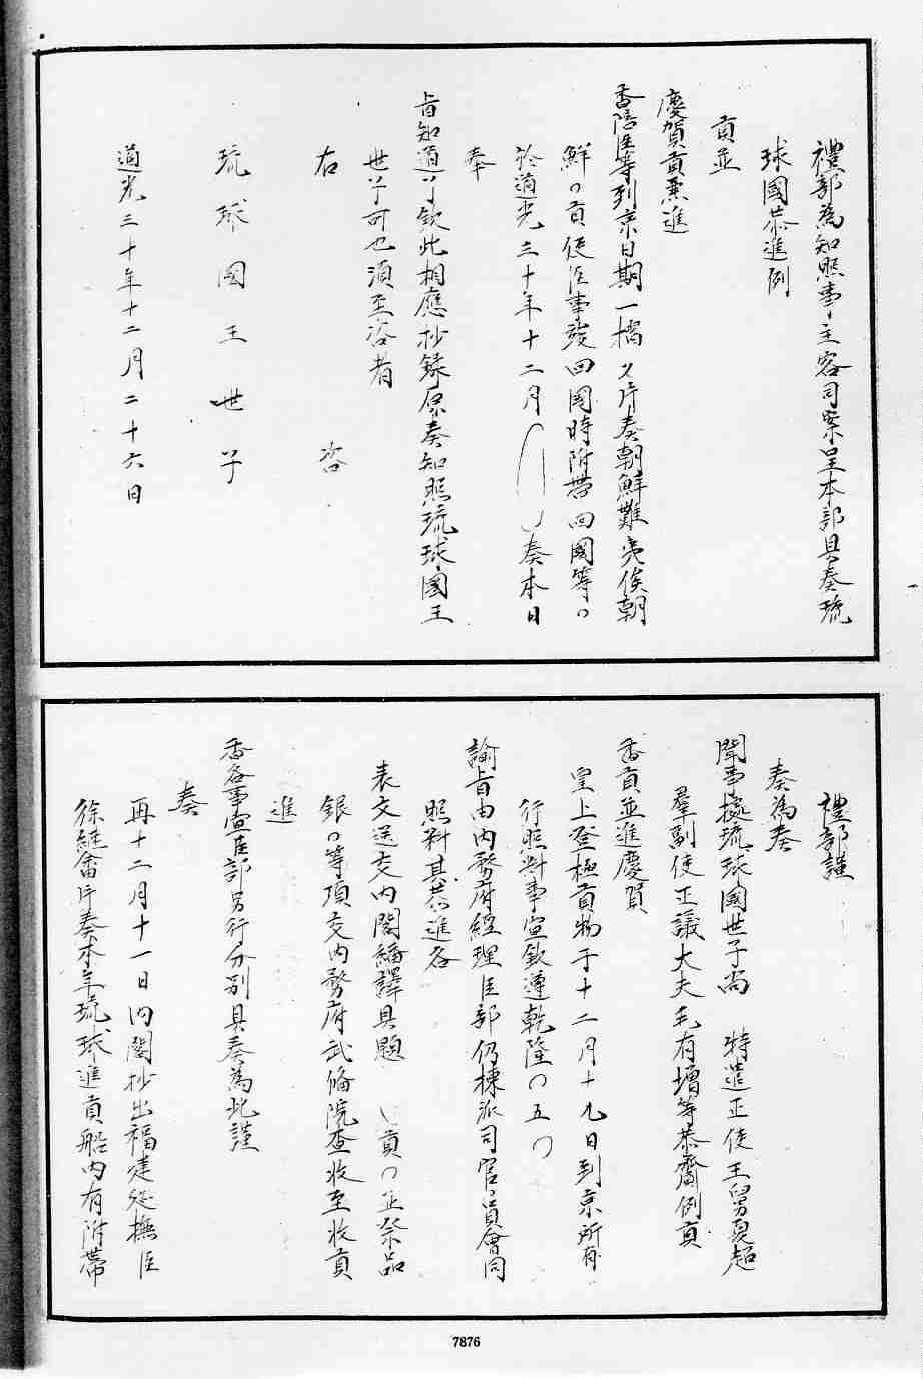 禮部為知照事主客司案呈本部具奏琉
球國恭進例
貢並
慶賀貢燕進
香陪臣等到京日期一摺又片奏朝鮮難夷俟朝
鮮貢使臣事竣回國時附帶回國等
於道光三十年十二月 奏本日
奉
旨知道了欽此相應抄錄原奏知照琉球國王
世子可也須至咨者
右 咨
琉球國王世子
道光三十年十二月二十六日
禮部謹
奏為奏
聞事據琉球國世子尚 特遣正使王舅夏超
羣副使正議大夫毛有增等恭齎例貢
香貢並進慶賀
皇上登極貢物于十二月十九日到京所有
行照料事宜欽遵乾隆 五
諭旨由內務府經理臣部仍揀派司官員會同
照料其恭進各
表文送交內閣繙譯具題 貢 並祭品
銀 等項交內務府武備院查收至收貢
進
香各事宜臣部另行分別具奏為此謹
奏
再十二月十一日內閣抄出福建巡撫臣
徐繼畬片奏本年琉球進貢船內有附帶
7876